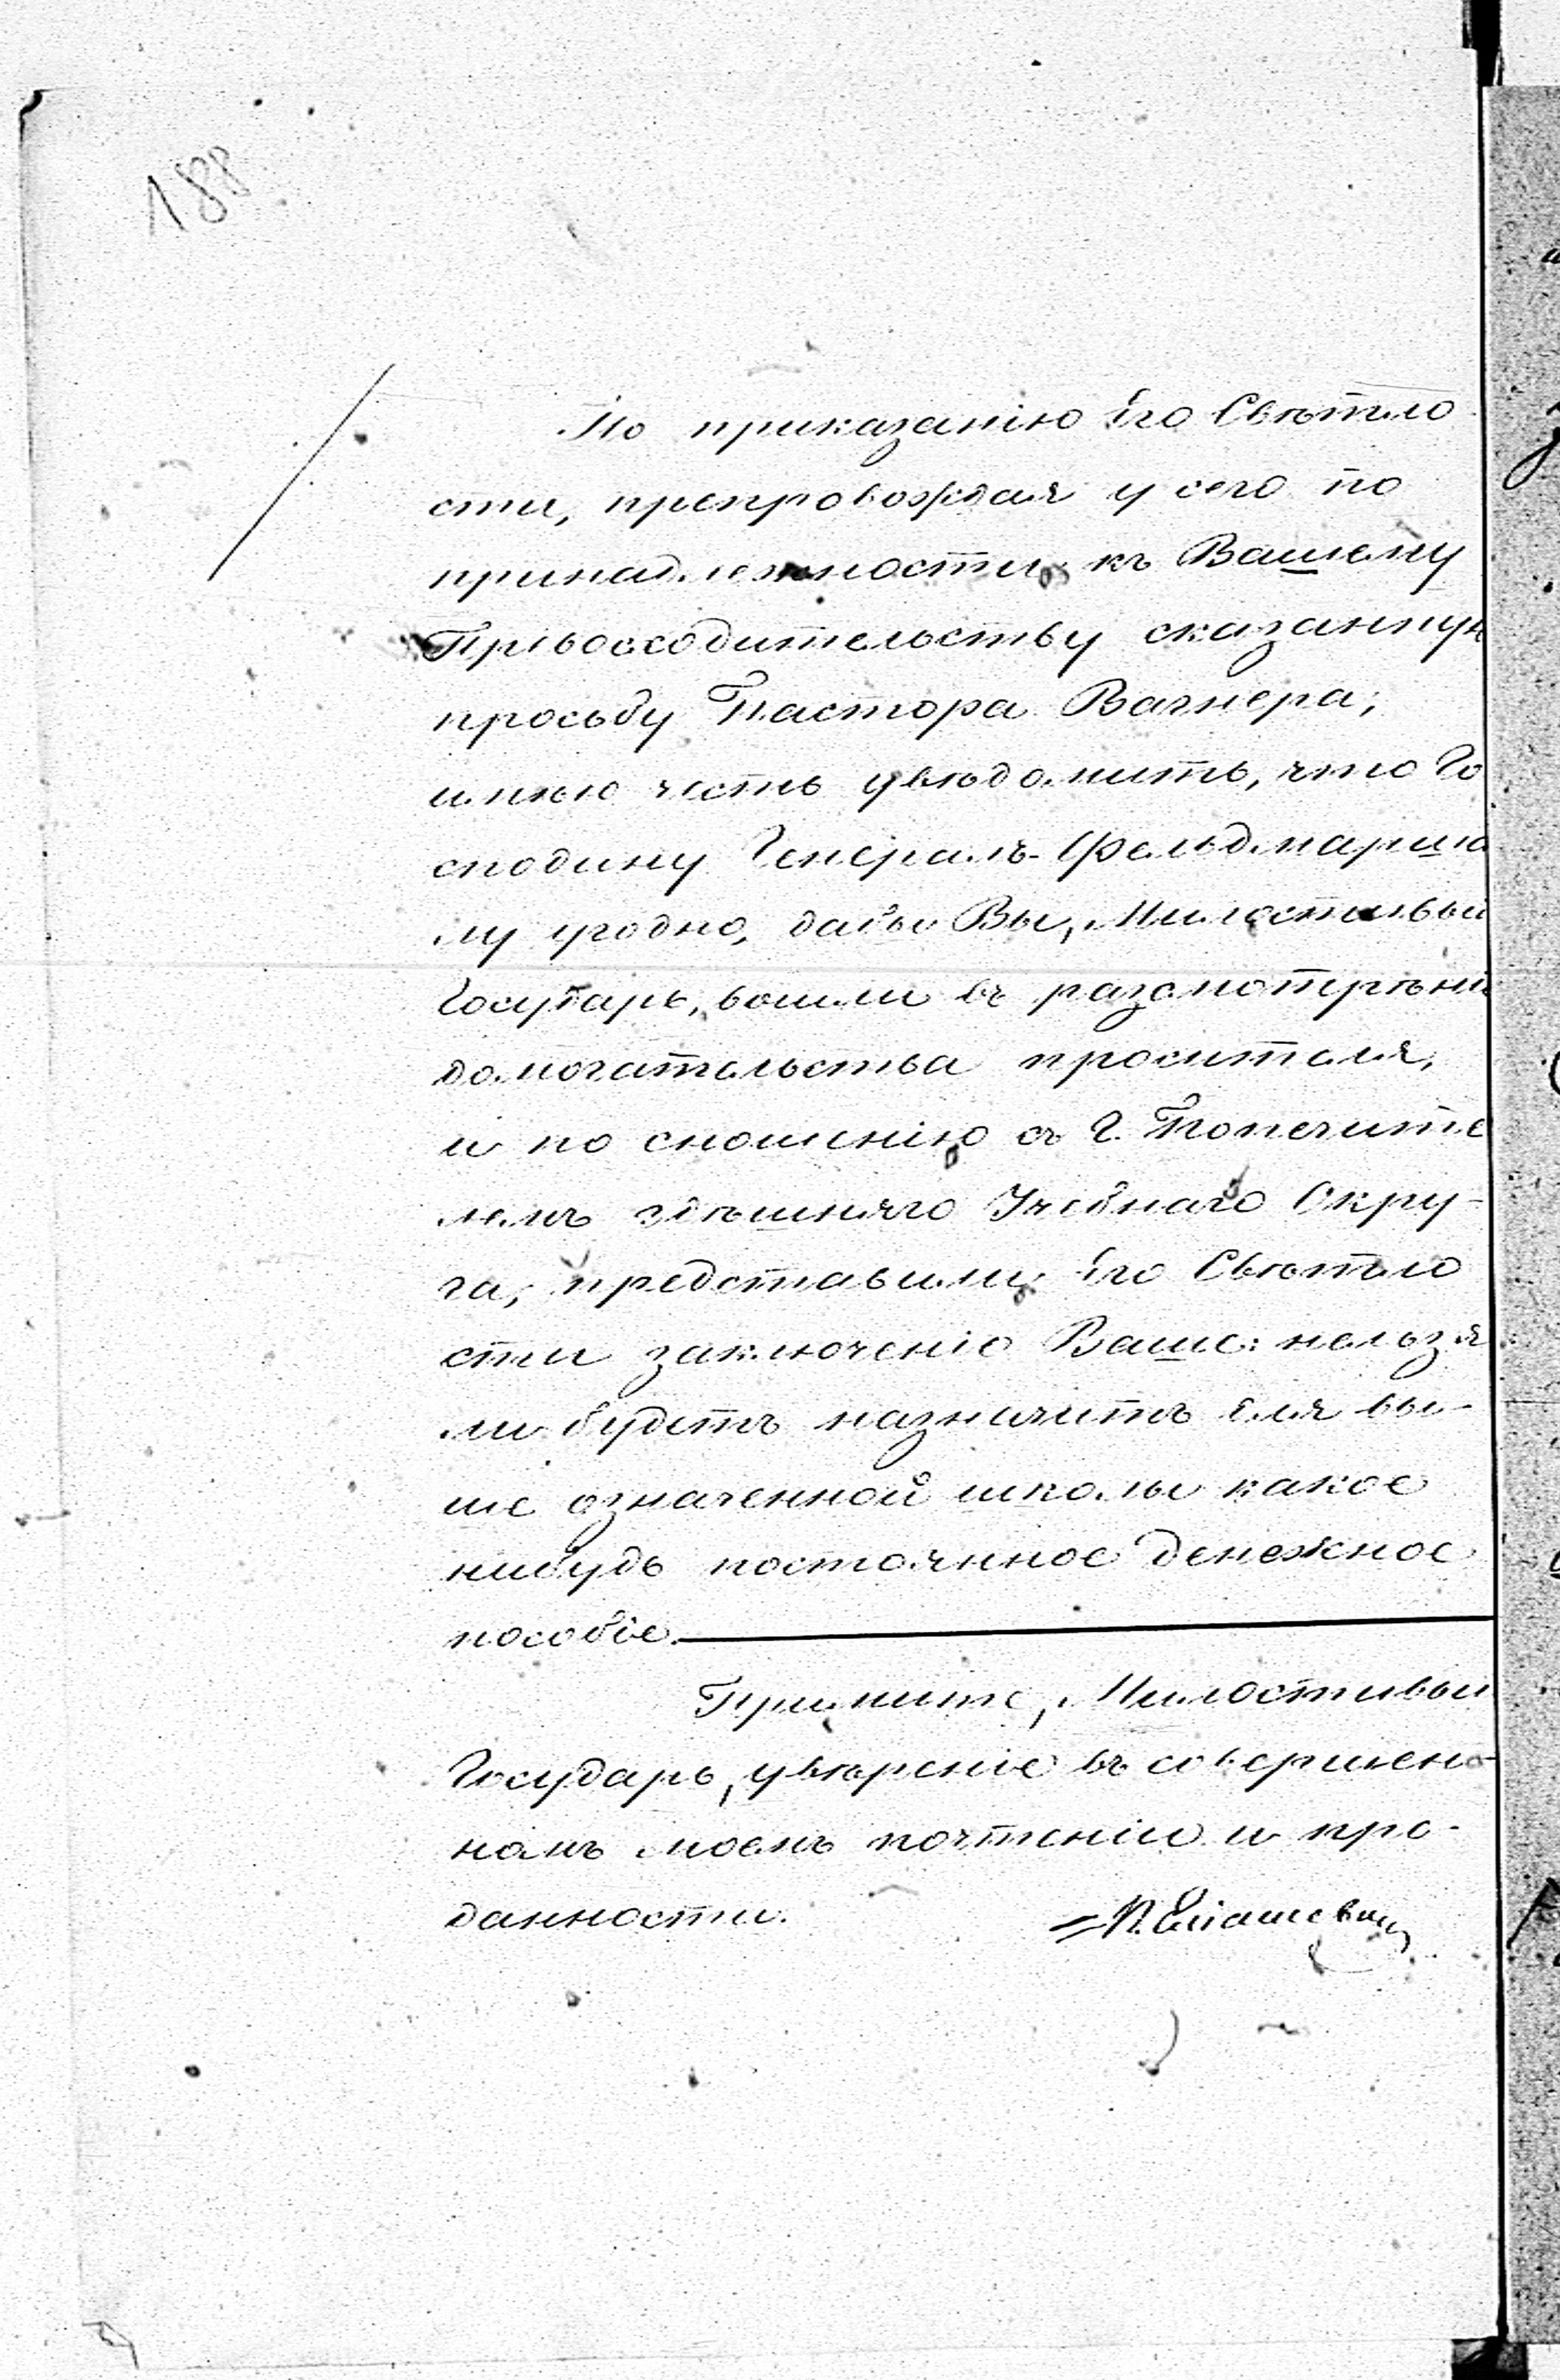 188
По приказанію Его Свѣтло
сти, препровождая у сего по
принадлежности къ Вашему
Превосходительству сказанную
просьбу Пастора Вагнера,
имѣю честь увѣдомить, что Го
сподину Генералъ-Фельдмарша
лу угодно, дабы Вы, Милостивый
Государь, вошли въ разсмотрѣніе
домогательства просителя,
и по сношенію съ Г. Попечите
лемъ здѣшняго Учебнаго Окру-
га, представили Его Свѣтло
сти заключеніе Ваше: нельзя
ли будетъ назначить для вы-
ше означенной школы какое
нибудь постоянное денежное
пособіе.
Примите, Милостивый
Государь, увѣреніе въ совершен-
номъ моемъ почтеніи и пре-
данности.